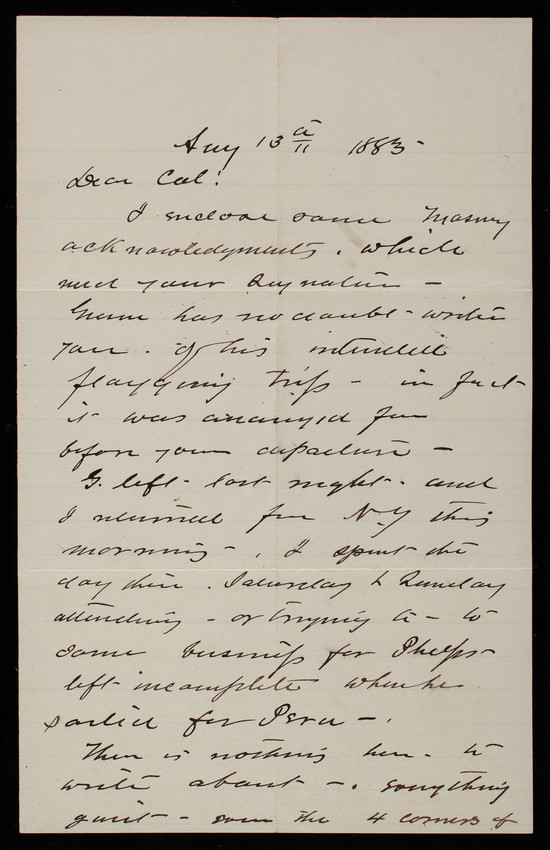 Aug 13th 1883
Dear Col:
I enclose some Masury
acknowledgments. which
need your signature –
Greene has no doubt – written
you. of his intended
flagging trip – in fact
it was arranged
before your departure –
G. left last night. and
I returned from N.Y this
morning –. I spent the
day there. Saturday & Sunday
attending – or trying to – to
some business for Phelps –
left incomplete when he
sailed for Peru –.
There is nothing here. to
write about –. everything
quiet – even the 4 corners of